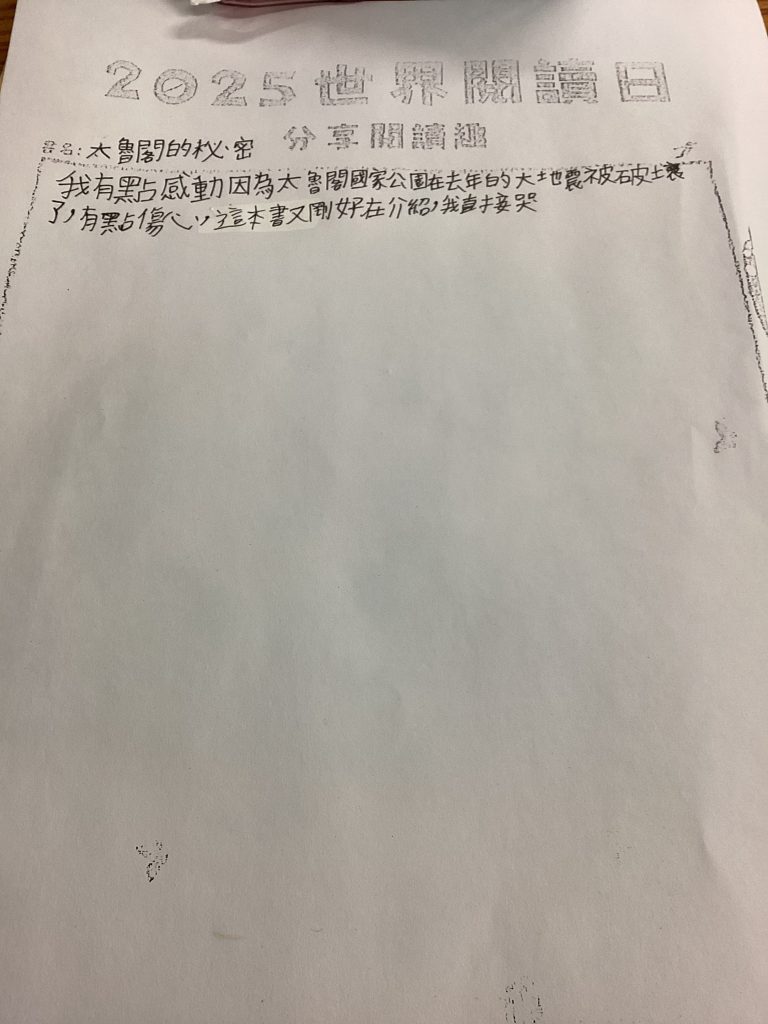 2025世界閱讀日
分享閱讀趣
書名:太魯閣的秘密
我有點感動因為太魯閣國家公園在去年的大地震被破壞
了,有點傷心,這本書又剛好在介紹,我直接哭